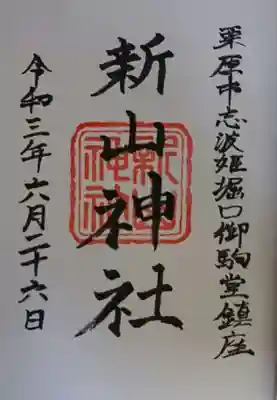 栗原市志波姫堀口御駒堂鎮座
新山神社
令和三年六月二十六日
新山
神社